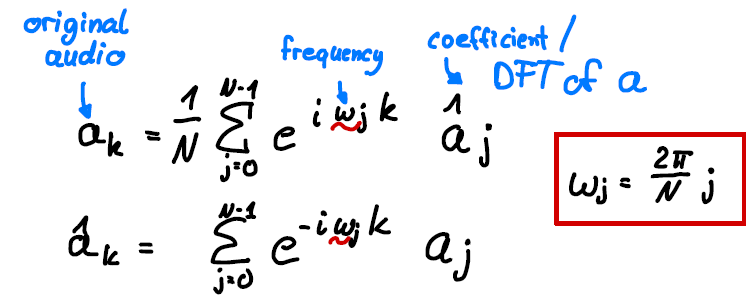 original audio
frequency
coefficient / DFT of a
a_k = \frac{1}{N} \sum_{j=0}^{N-1} e^{i ω_j k} \hat{a}_j
ω_j = \frac{2π}{N} j
\hat{a}_k = \sum_{j=0}^{N-1} e^{-i ω_j k} a_j